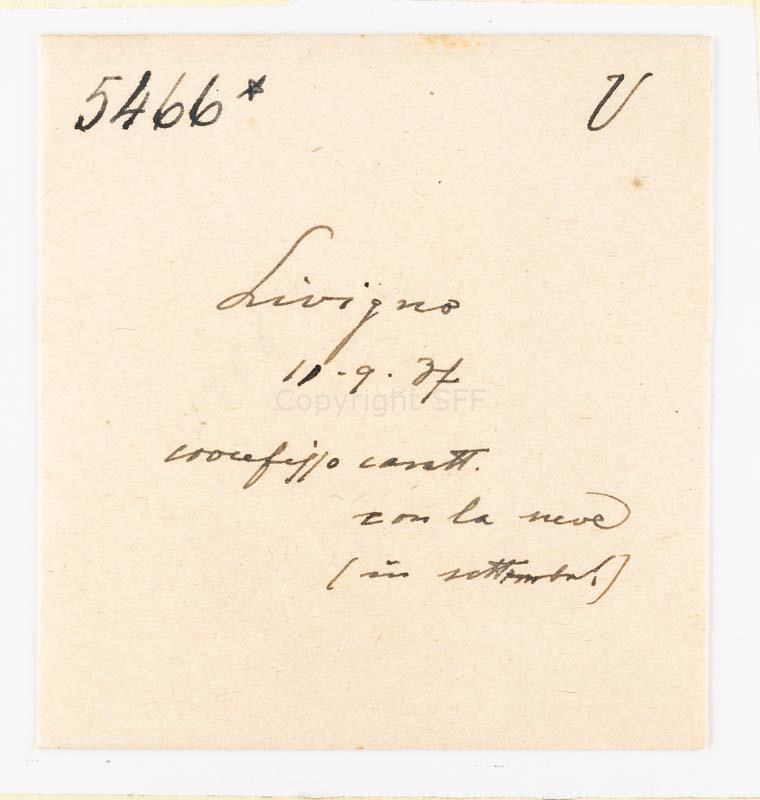 5466* V
Livigno
11-9.37
Copyright SFF
crocefisso caratt.
con la neve
(in settembre!)